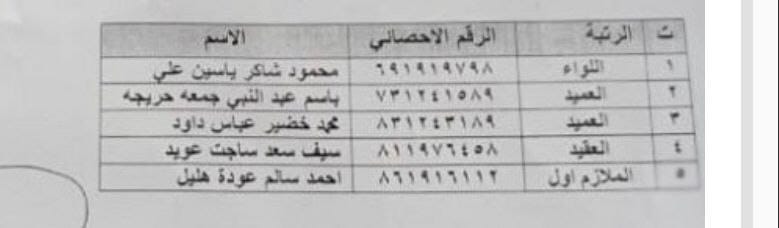 ت الرتبة الرقم الاحصائي الاسم
١ اللواء ٦٩١٩١٩٧٩٨ محمود شاكر ياسين علي
٢ العميد ٧٣١٢٤١٥٨٩ باسم عبد النبي جمعه حريجه
٣ العميد ٨٣١٢٤٣١٨٩ محمد خضير عباس داود
٤ العقيد ٨١١٩٧٦٤٥٨ سيف سعد ساجت عويد
٥ الملازم اول ٨٦١٩١٦١١٢ احمد سالم عودة هليل